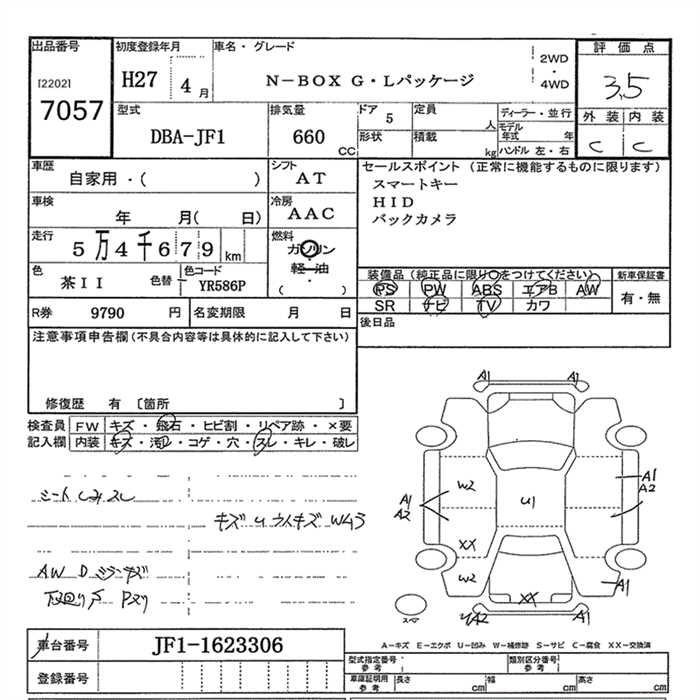 出品番号 初度登録年月 車名・グレード 評価点
[2202] 7057 H27 4月 N-BOX G・Lパッケージ 2WD・4WD 3.5
型式 排気量 ドア 5 定員 人 ディーラー・並行 外装 内装
DBA-JF1 660 CC 形状 積載 kg モデル年式 年 ハンドル 左・右 C C
車歴 シフト セールスポイント (正常に機能するものに限ります)
自家用・( ) AT スマートキー
車検 冷房 HID
年 月( 日) AAC バックカメラ
走行 燃料
5万4千679km ガソリン
軽・油
( )
色 色コード 装備品(純正品に限り○をつけてください) 新車保証書
茶II 色替 YR586P PS PW ABS エアB AW 有・無
SR ナビ TV カワ
R券 9790 円 名変期限 月 日 後日品
注意事項申告欄(不具合内容等は具体的に記入して下さい)
修復歴 有 [箇所 ]
検査員 FW キズ・飛石・ヒビ割・リペア跡・×要
記入欄 内装 キズ・汚レ・コゲ・穴・スレ・キレ・破レ
シート シミ スレ
キズ U ウスキズ Wムラ
AW D ミラーキズ
下廻りサ Pスリ
A1 A1
W2 U1 A1 A2
A1 A2
XX
W2 XX A1
スペア A2
A-キズ E-エクボ U-凹み W-補修跡 S-サビ C-腐食 XX-交換済
車台番号 JF1-1623306 型式指定番号 参考 類別区分番号 参考
登録番号 車庫証明用 参考 長さ cm 幅 cm 高さ cm